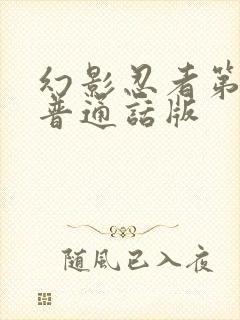 幻影忍者第
普通話版
随风已入夜